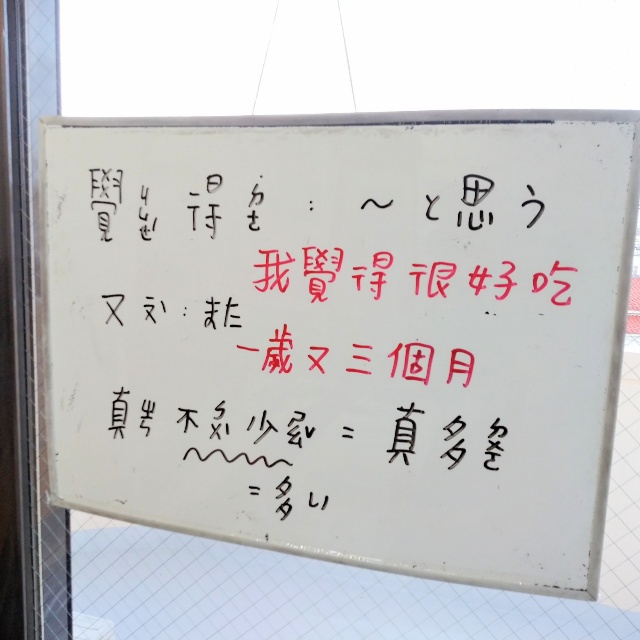 覺ㄐㄩㄝˊ 得ㄉㄜ˙ : ～と思う
我覺得很好吃
又ㄡˋ : また
一歲又三個月
真ㄓㄣ 不ㄅㄨˋ 少ㄕㄠˇ = 真多ㄉㄨㄛ
= 多い